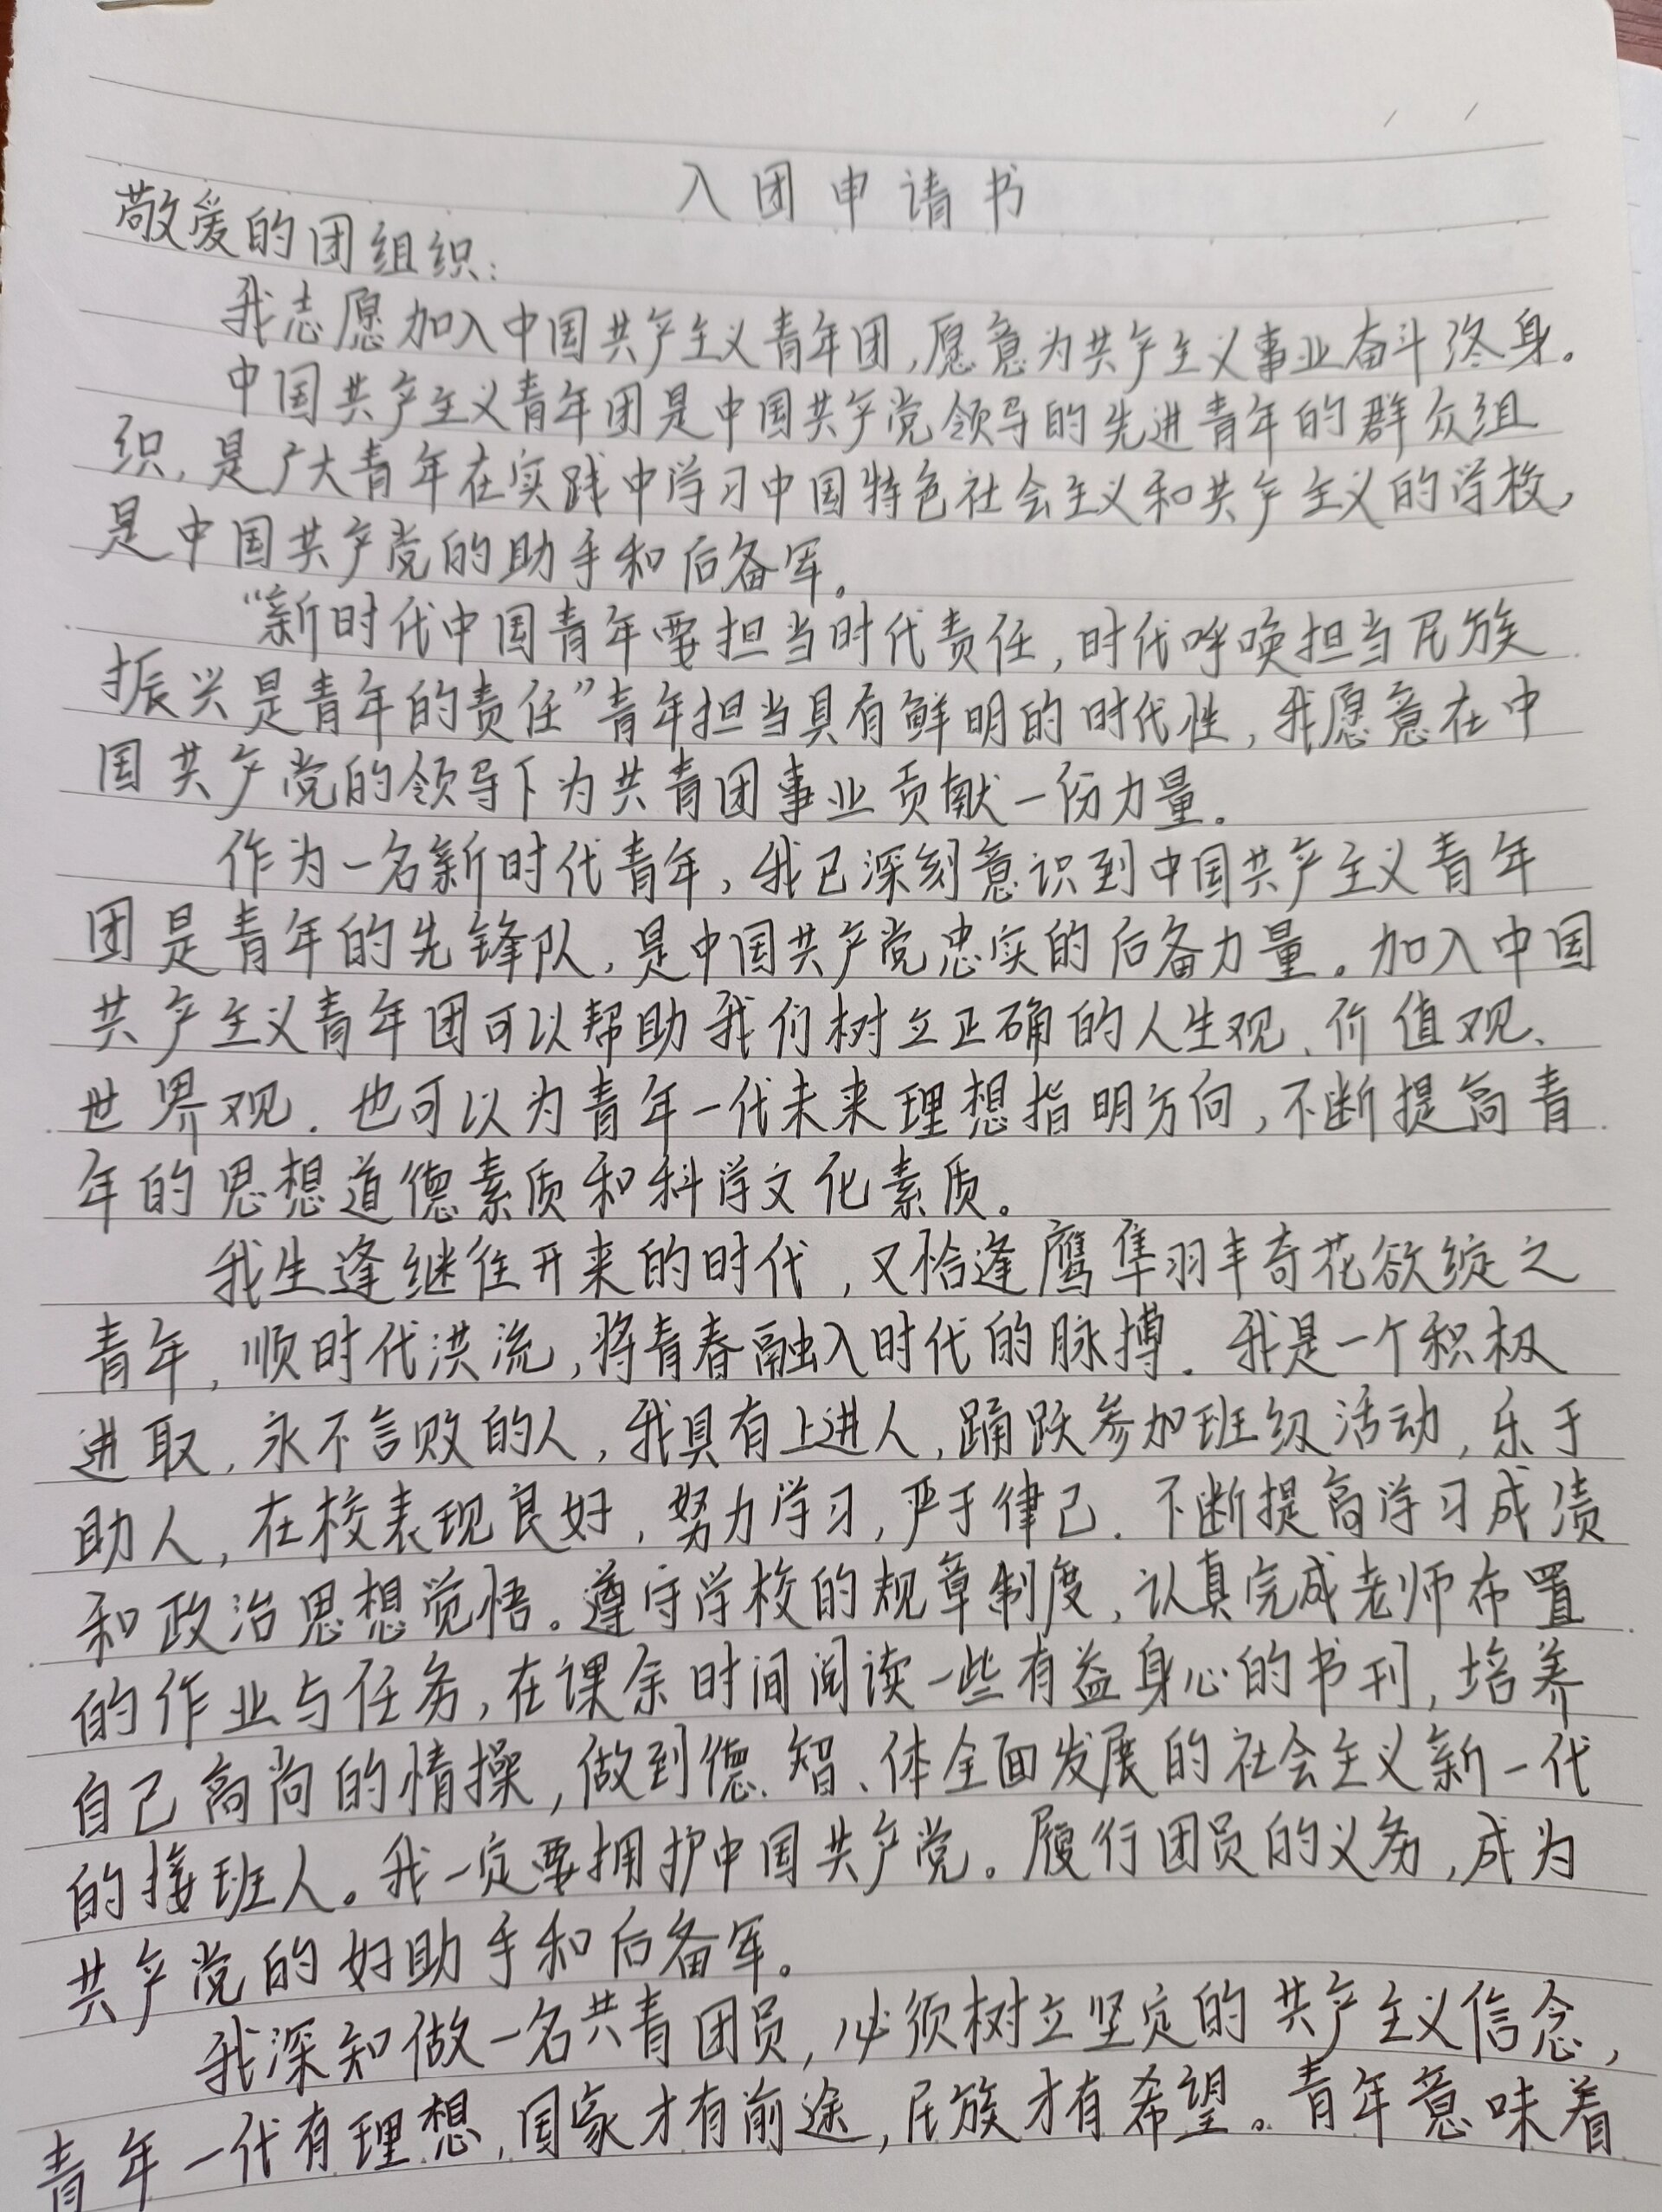 入团申请书
敬爱的团组织:
我志愿加入中国共产主义青年团,愿意为共产主义事业奋斗终身。
中国共产主义青年团是中国共产党领导的先进青年的群众组
织,是广大青年在实践中学习中国特色社会主义和共产主义的学校,
是中国共产党的助手和后备军。
“新时代中国青年要担当时代责任,时代呼唤担当民族
振兴是青年的责任”青年担当具有鲜明的时代性,我愿意在中
国共产党的领导下为共青团事业贡献一份力量。
作为一名新时代青年,我已深刻意识到中国共产主义青年
团是青年的先锋队,是中国共产党忠实的后备力量。加入中国
共产主义青年团可以帮助我们树立正确的人生观、价值观、
世界观.也可以为青年一代未来理想指明方向,不断提高青
年的思想道德素质和科学文化素质。
我生逢继往开来的时代,又恰逢鹰隼羽丰奇花欲绽之
青年,顺时代洪流,将青春融入时代的脉搏.我是一个积极
进取,永不言败的人,我具有上进人,踊跃参加班级活动,乐于
助人,在校表现良好,努力学习,严于律己.不断提高学习成绩
和政治思想觉悟。遵守学校的规章制度,认真完成老师布置
的作业与任务,在课余时间阅读一些有益身心的书刊,培养
自己高尚的情操,做到德、智、体全面发展的社会主义新一代
的接班人。我一定要拥护中国共产党。履行团员的义务,成为
共产党的好助手和后备军。
我深知做一名共青团员,必须树立坚定的共产主义信念,
青年一代有理想,国家才有前途,民族才有希望。青年意味着